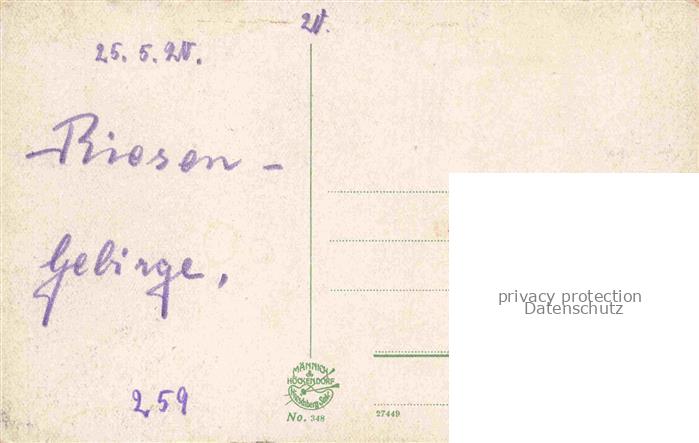 25. 5. 2N.
Riesen-
Gebirge,
259
2N.
MÄNNICH
&
HÖCKENDORF
No. 348
27449
privacy protection
Datenschutz